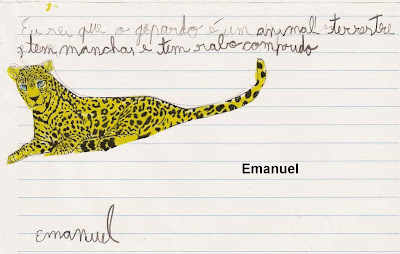 Eu sei que o gepardo é um animal terrestre
e tem manchas e tem rabo comprido
Emanuel
Emanuel